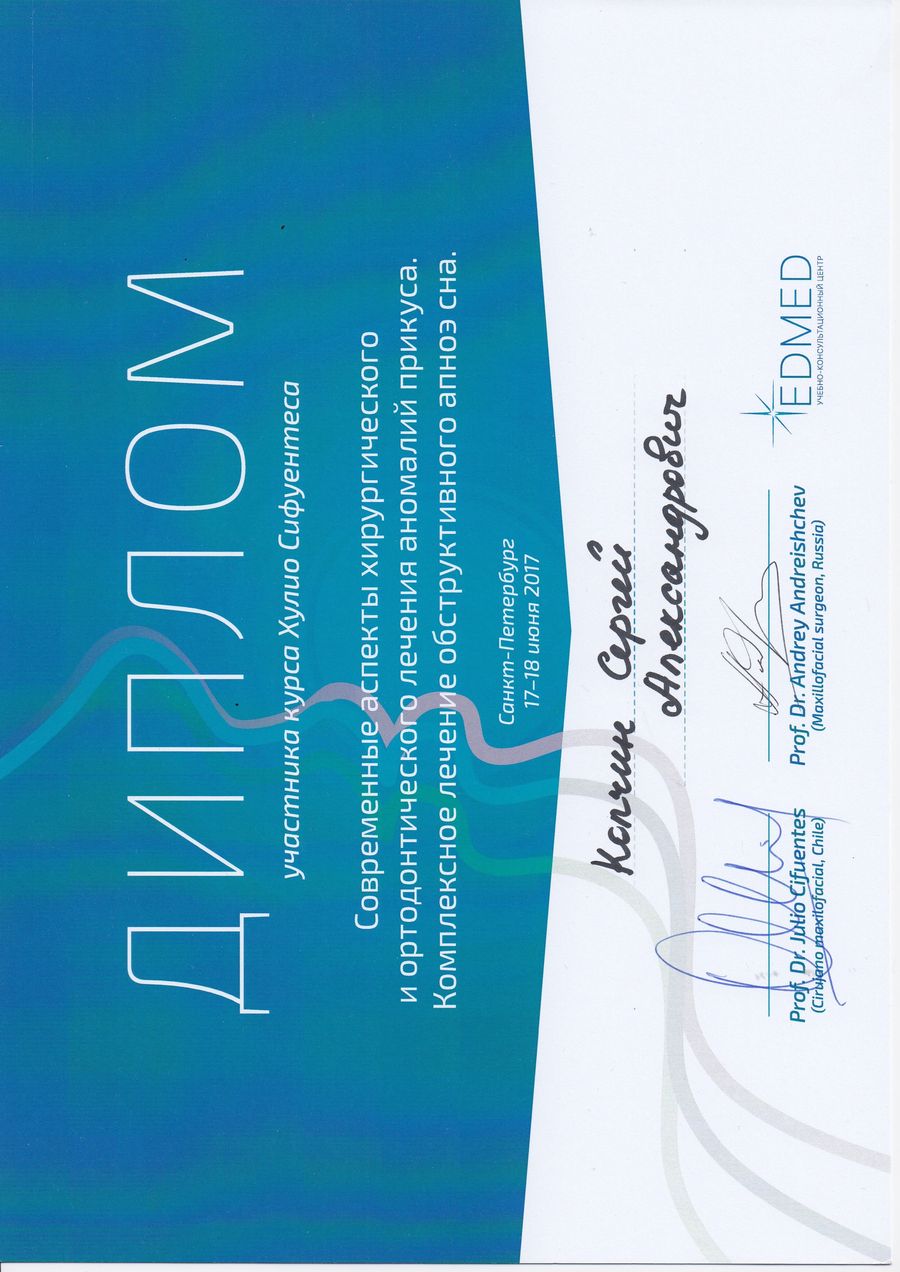 ДИПЛОМ
участника курса Хулио Сифуентеса
Современные аспекты хирургического
и ортодонтического лечения аномалий прикуса.
Комплексное лечение обструктивного апноэ сна.
Санкт-Петербург
17-18 июня 2017
Кепчин Сергей
Александрович
Prof. Dr. Julio Cifuentes
(Cirujano maxilofacial, Chile)
Prof. Dr. Andrey Andreishchev
(Maxillofacial surgeon, Russia)
EDMED
УЧЕБНО-КОНСУЛЬТАЦИОННЫЙ ЦЕНТР